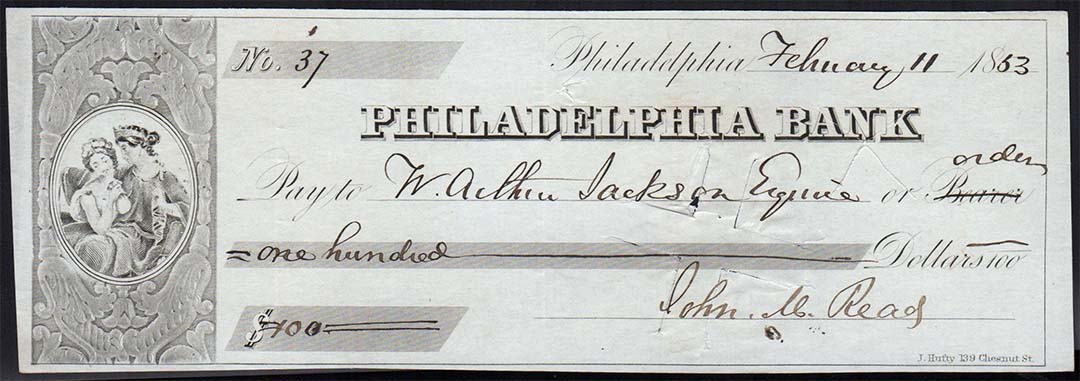 No. 37
Philadelphia February 11 1853
PHILADELPHIA BANK
order
Pay to W. Arthur Jackson Esquire or Bearer
= one hundred Dollars 100
$ 100
John. M. Read
J. Hufty 139 Chesnut St.